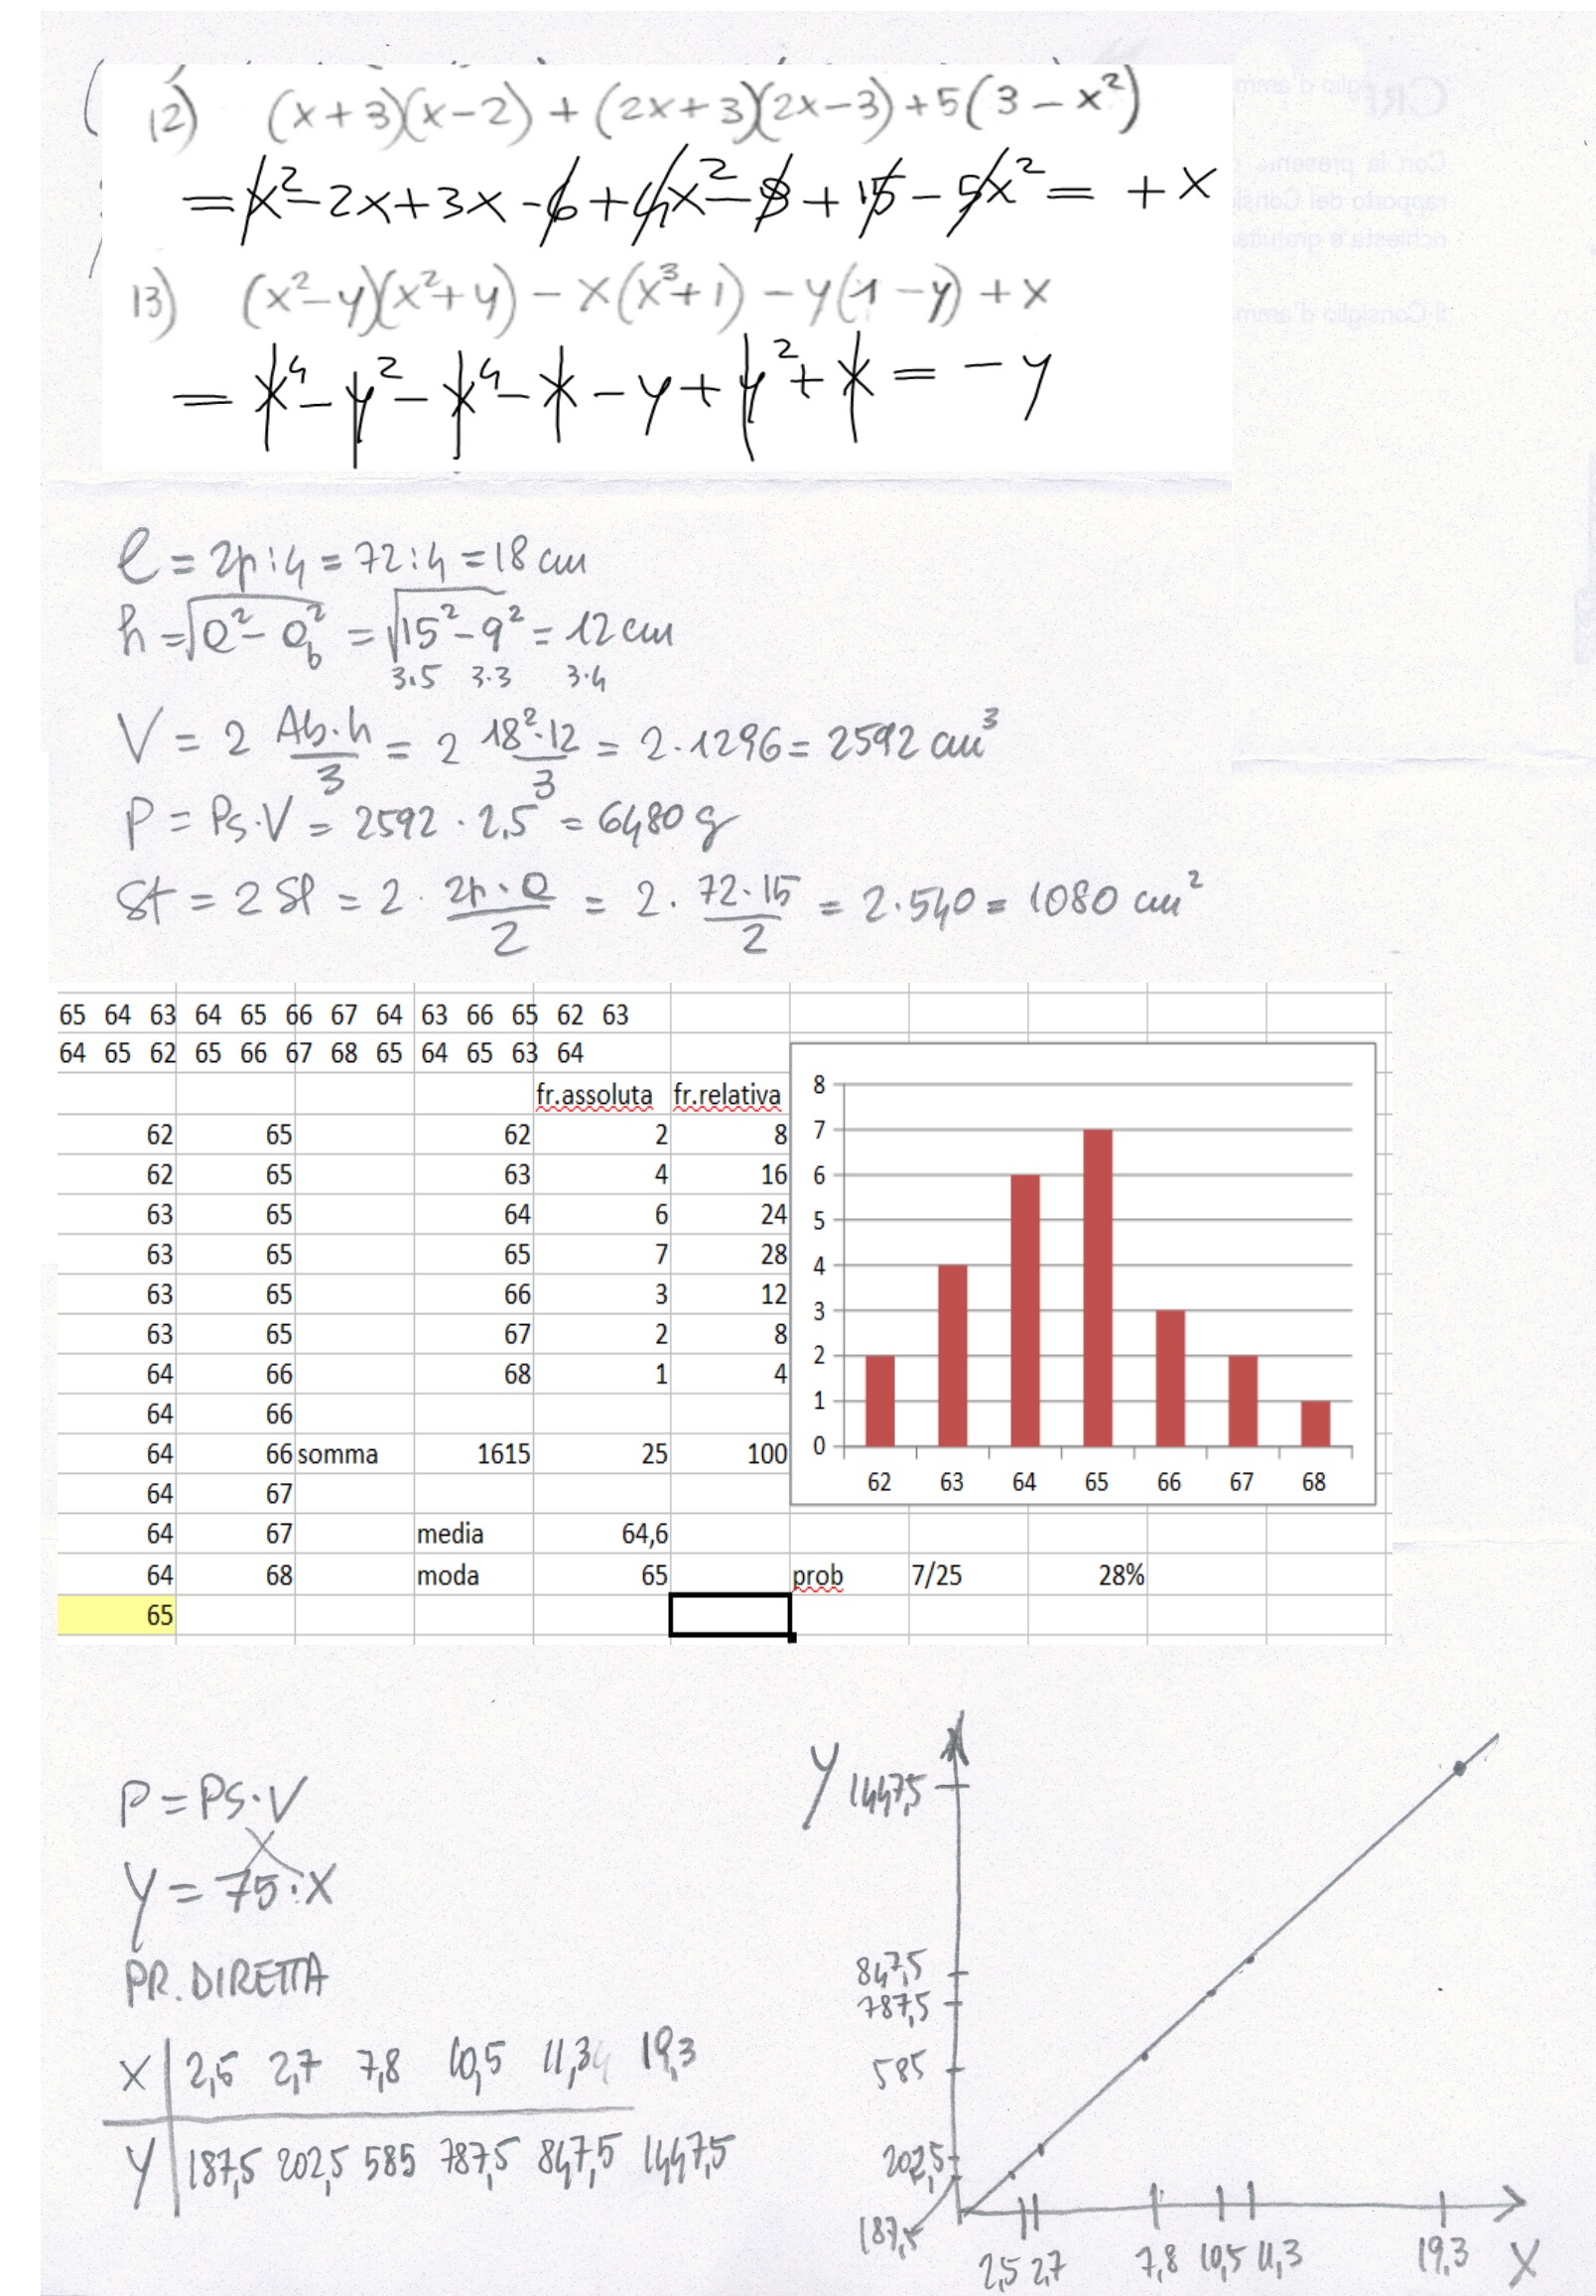 12) (x+3)(x-2)+(2x+3)(2x-3)+5(3-x²)
=x²-2x+3x-6+4x²-9+15-5x²=+x
13) (x²-y)(x²+y)-x(x³+1)-y(1-y)+x
=x⁴-y²-x⁴-x-y+y²+x=-y
l=2p:4=72:4=18 cm
h=√a²-a_b²=√15²-9²=12 cm
3.5 3.3 3.4
V=2 Ab.h/3=2 18².12/3=2.1296=2592 cm³
P=Ps.V=2592.2,5=6480 g
St=2Sl=2.2p.a/2=2.72.15/2=2.540=1080 cm²
65 64 63 64 65 66 67 64 63 66 65 62 63
64 65 62 65 66 67 68 65 64 65 63 64
fr.assoluta fr.relativa
62 65 62 2 8
62 65 63 4 16
63 65 64 6 24
63 65 65 7 28
63 65 66 3 12
63 65 67 2 8
64 66 68 1 4
64 66
64 66 somma 1615 25 100
64 67
64 67 media 64,6
64 68 moda 65 prob 7/25 28%
65
8
7
6
5
4
3
2
1
0
62 63 64 65 66 67 68
P=Ps.V
y=75.x
PR. DIRETTA
x 2,5 2,7 7,8 10,5 11,3 19,3
y 187,5 202,5 585 787,5 847,5 1447,5
y
1447,5
847,5
787,5
585
202,5
187,5
2,5 2,7 7,8 10,5 11,3 19,3 x